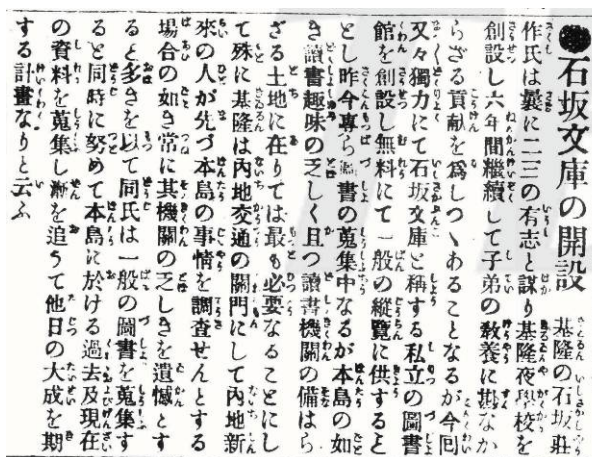 ●石坂文庫の開設 基隆の石坂莊
作氏は曩に二三の有志と謀り基隆夜學校を
創設し六年間繼續して子弟の敎養に尠なか
らざる貢献を爲しつゝあることなるが今囘
又々獨力にて石坂文庫と稱する私立の圖書
館を創設し無料にて一般の縱覽に供すると
とし昨今專ら圖書の蒐集中なるが本島の如
き讀書趣味の乏しく且つ讀書機關の備はら
ざる土地に在りては最も必要なることにし
て殊に基隆は內地交通の關門にして內地新
來の人が先づ本島の事情を調査せんとする
塲合の如き常に其機關の乏しきを遺憾とす
ると多きを以て同氏は一般の圖書を蒐集す
ると同時に努めて本島に於ける過去及現在
の資料を蒐集し漸を追うて他日の大成を期
する計畫なりと云ふ